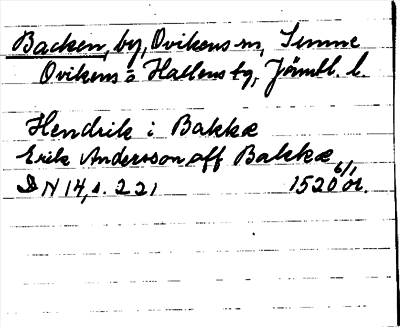 Backen, by, Ovikens sn,
Ovikens o Hallens tg, Jämtl. l.
Hendrik i Bakkæ
Erik Andersson aff Bakkæ
DN 14, s. 221 1520 6/1 or.